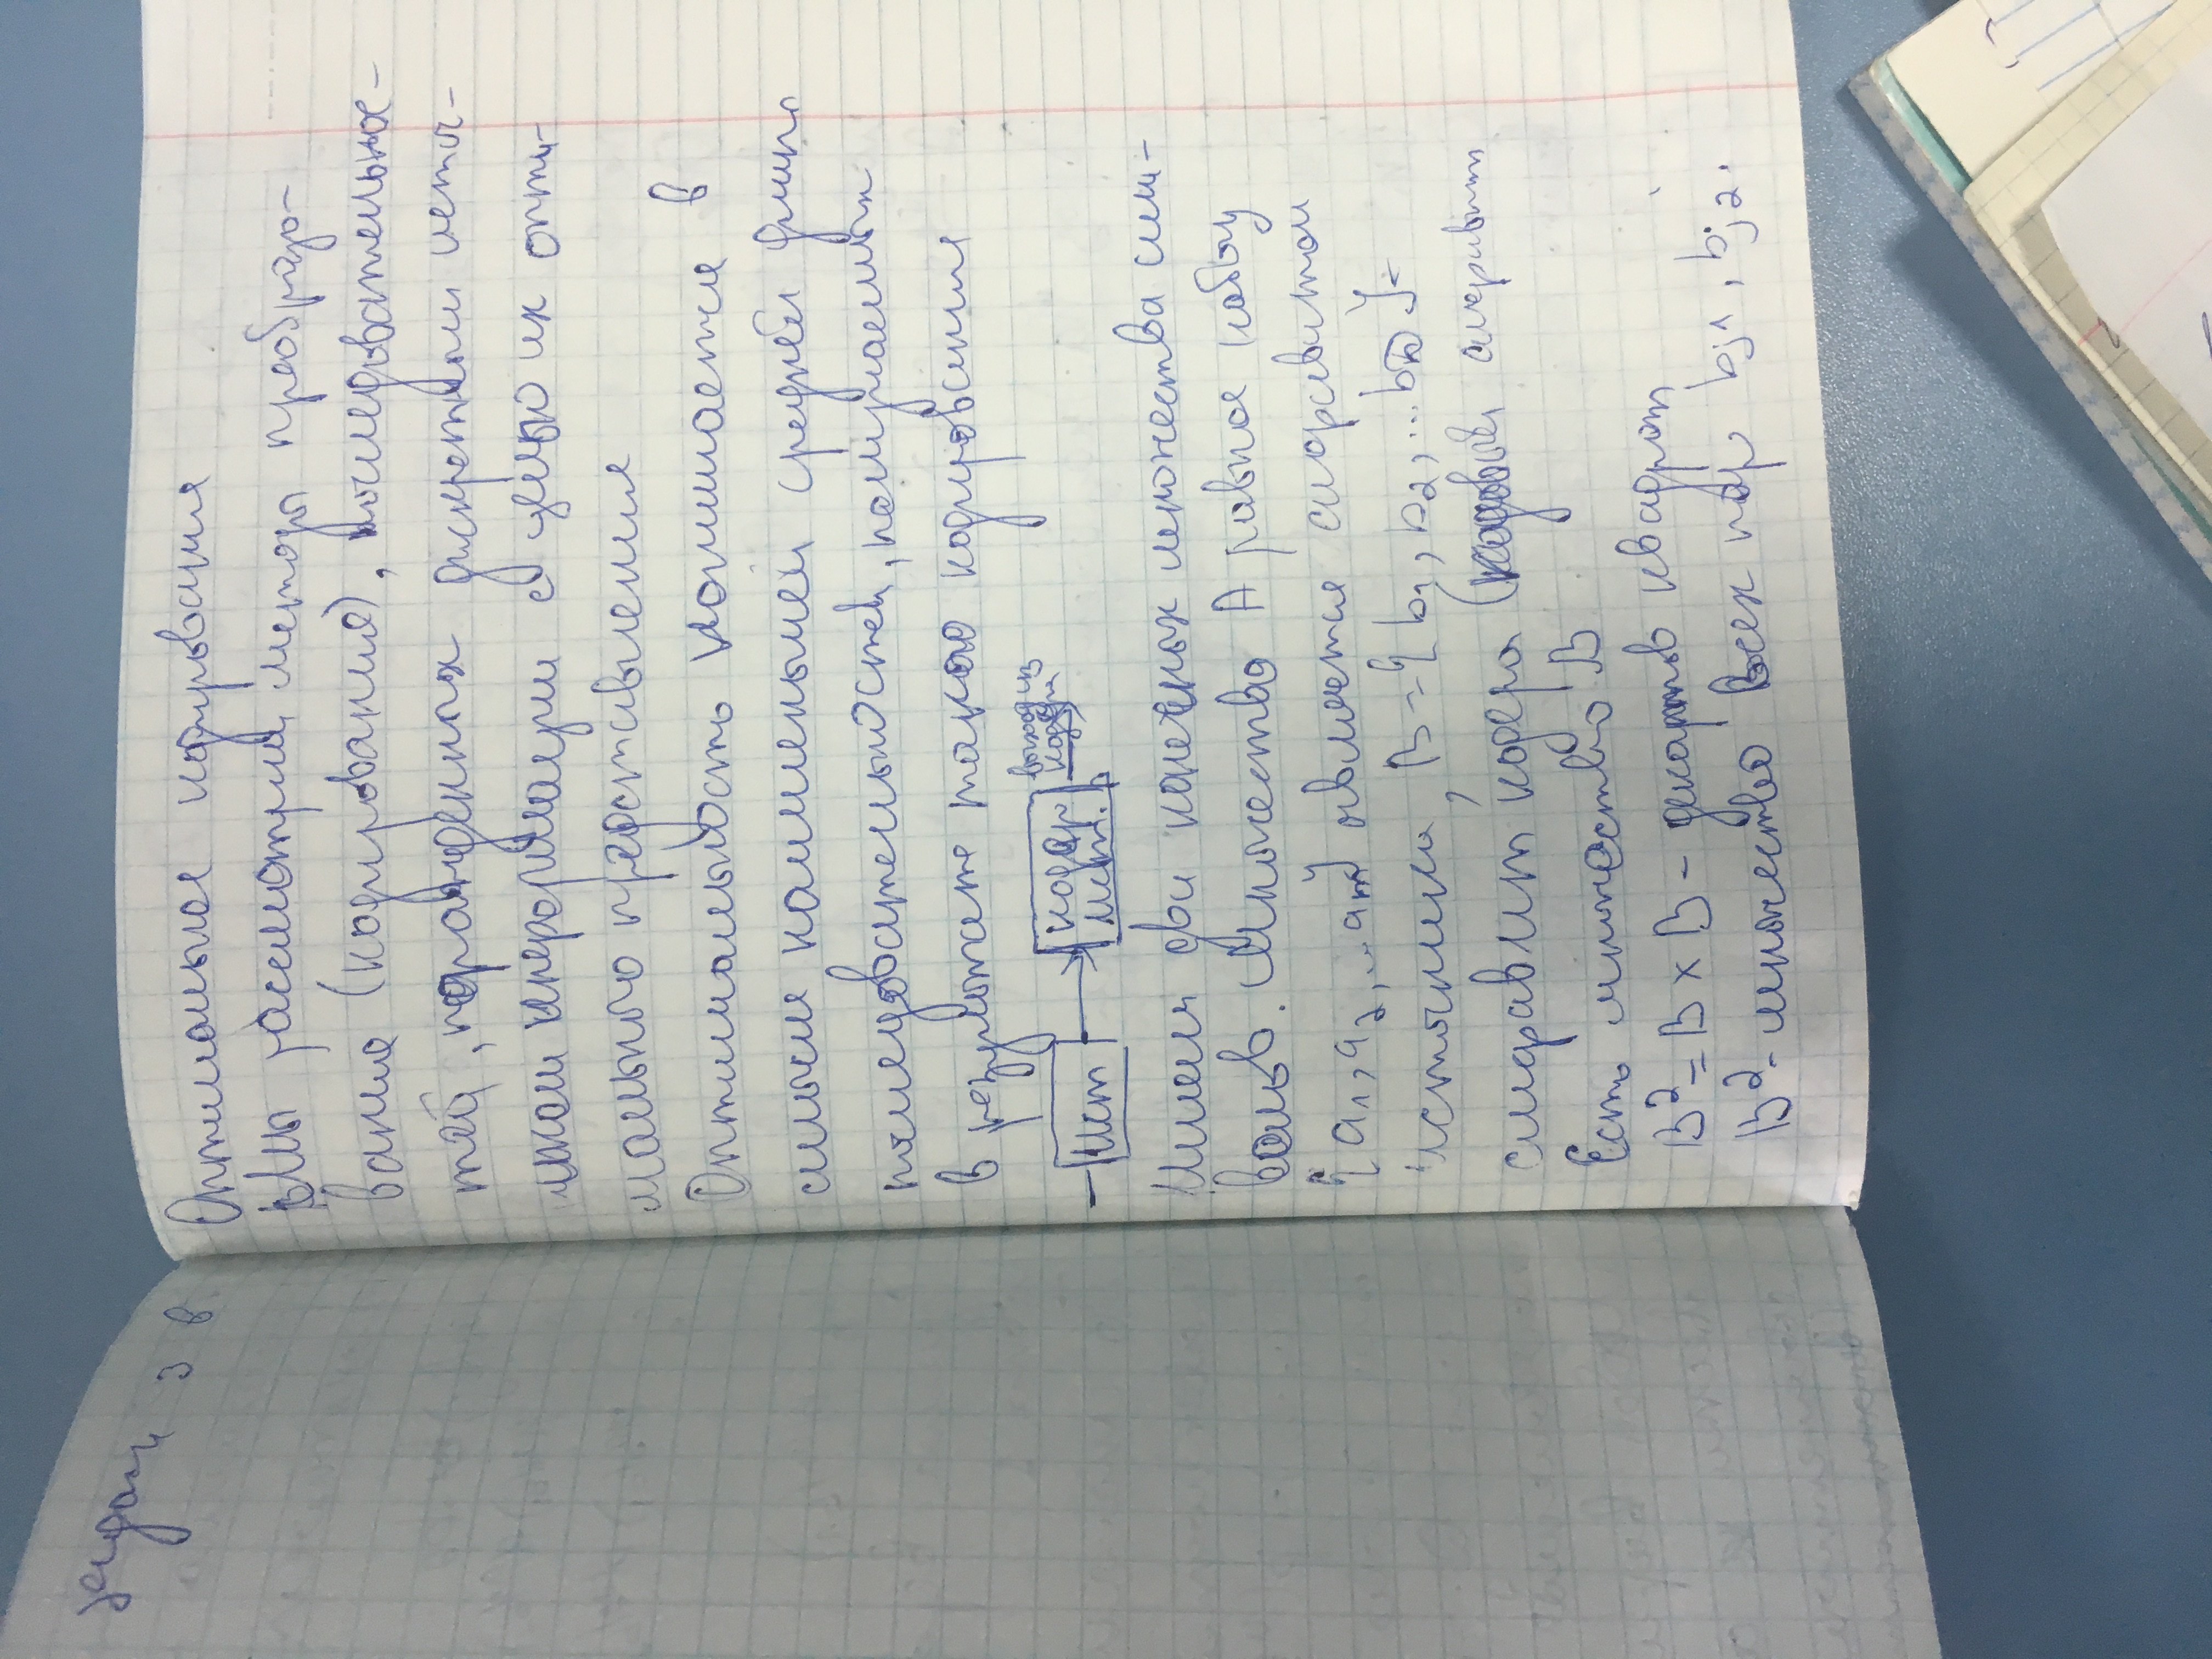 задан 3 в
Оптимальное кодирование
Мы рассмотрим методы преобразо-
вания (кодирования), последовательнос-
тей, порожденных дискретным источ-
ником информации с целью их опти-
мального представления
Оптимальность понимается в
смысле наименьшей средней длины
последовательностей, получаемых
в результате такого кодирования
ист
кодер
ист.
выход из
кодера
Имеем два конечных множества сим-
волов. Множество A равное набору
{a₁, a₂, ... aₘ} является алфавитом
источника, B = {b₁, b₂, ... } -
алфавит кодера (кодовый алфавит
Есть множество B
B² = B × B - декартов квадрат
B² - множество всех пар bj1, bj2.